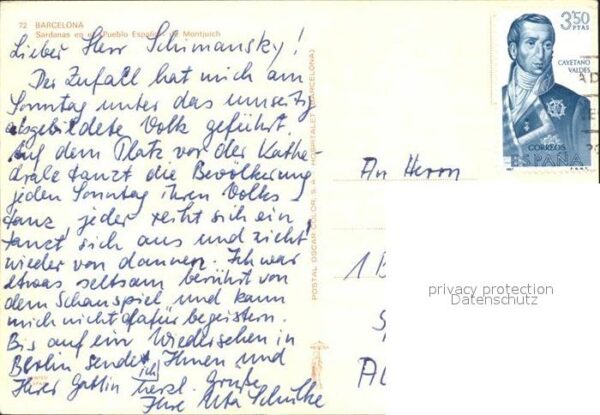 72 BARCELONA
Sardanas en el "Pueblo Español" de Montjuich
Lieber Herr Schimansky!
Der Zufall hat mich am
Sonntag unter das umseitig
abgebildete Volk geführt.
Auf dem Platz vor der Kathe-
drale tanzt die Bevölkerung
jeden Sonntag ihren Volks-
tanz, jeder reiht sich ein,
tanzt sich aus und zieht
wieder von dannen. Ich war
etwas seltsam berührt von
dem Schauspiel und kann
mich nicht dafür begeistern.
Bis auf ein Wiedersehen in
Berlin sendet ich Ihnen und
Ihrer Gattin herzl. Grüße
Ihre Uta Schulke
POSTAL OSCAR COLOR, S.A. HOSPITALET (BARCELONA)
3'50
PTAS
CAYETANO
VALDES
CORREOS
ESPAÑA
An Herrn
1 B
privacy protection
Datenschutz